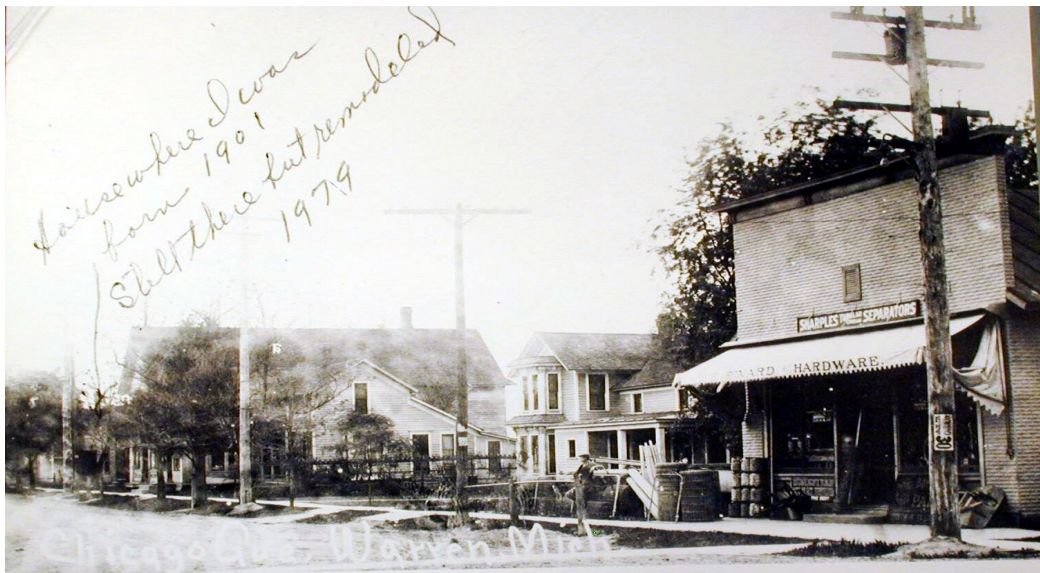 House where I was
born 1901
Still there but remodeled
1979
SHARPLES TUBULAR SEPARATORS
HARDWARE
Chicago Warren, Mich.